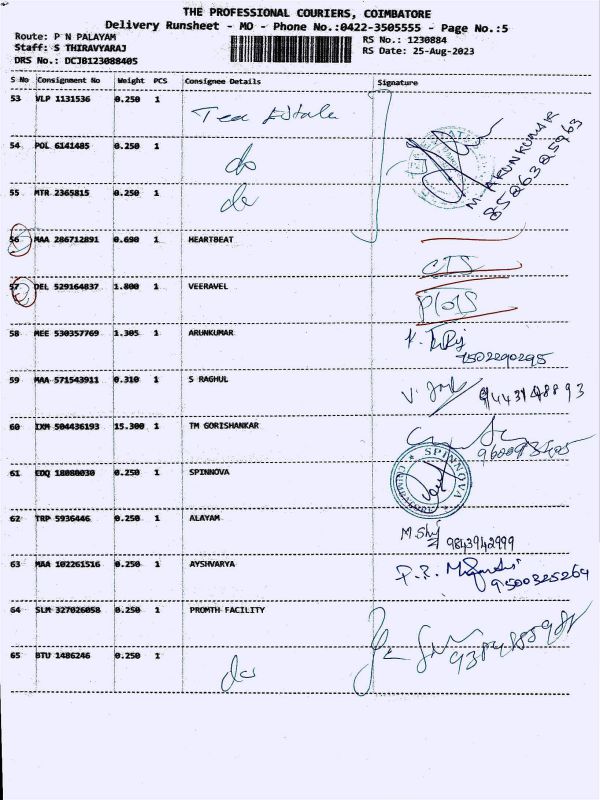 THE PROFESSIONAL COURIERS, COIMBATORE
Delivery Runsheet - MO - Phone No.:0422-3505555 - Page No.:5
Route: P N PALAYAM
RS No.: 1230884
Staff: S THIRAVYARAJ
RS Date: 25-Aug-2023
DRS No.: DCJB123088405
S No Consignment No Weight PCS Consignee Details Signature
53 VLP 1131536 0.250 1 Tea Estate
54 POL 6141485 0.250 1 do
M. ARUNKUMAR
8526325963
55 MTR 2365815 0.250 1 do
56 MAA 286712891 0.690 1 HEARTBEAT
CTS
57 DEL 529164837 1.800 1 VEERAVEL
58 MEE 530357769 1.305 1 ARUNKUMAR
7502290295
59 MAA 571543911 0.310 1 S RAGHUL
60 IXM 504436193 15.300 1 TM GORISHANKAR
61 EDQ 18080030 0.250 1 SPINNOVA
SPINNOVA
COIMBATORE
62 TRP 5936446 0.250 1 ALAYAM
9843942999
63 MAA 102261516 0.250 1 AYSHVARYA
9500325264
64 SLM 327026058 0.250 1 PROMTH FACILITY
65 BTU 1486246 0.250 1 do